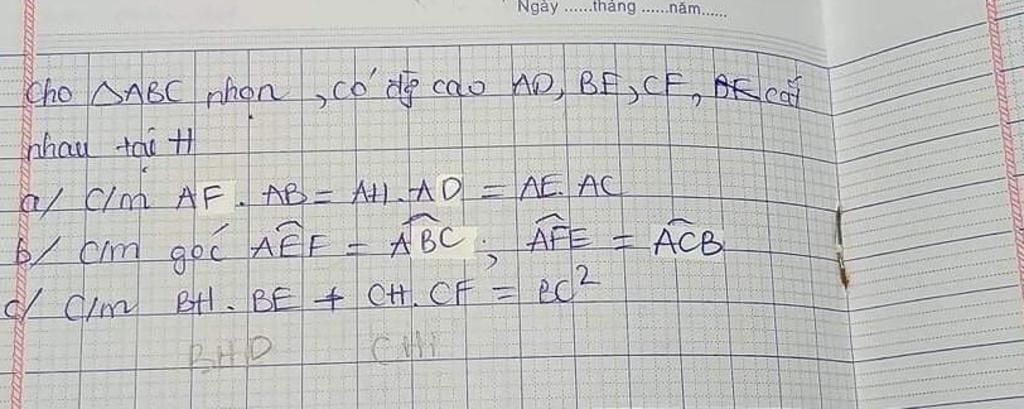 Ngày ......tháng ......năm......
Cho △ABC nhọn, có đg cao AD, BE, CF, cắt
nhau tại H
a/ C/m AF. AB = AH. AD = AE. AC
b/ C/m góc AEF = ABC; AFE = ACB
c/ C/m BH. BE + CH. CF = BC²
BHD